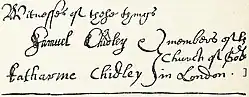 Witnesses of these things
Samuel Chidley } members of the
Church of God
Katharine Chidley } in London.